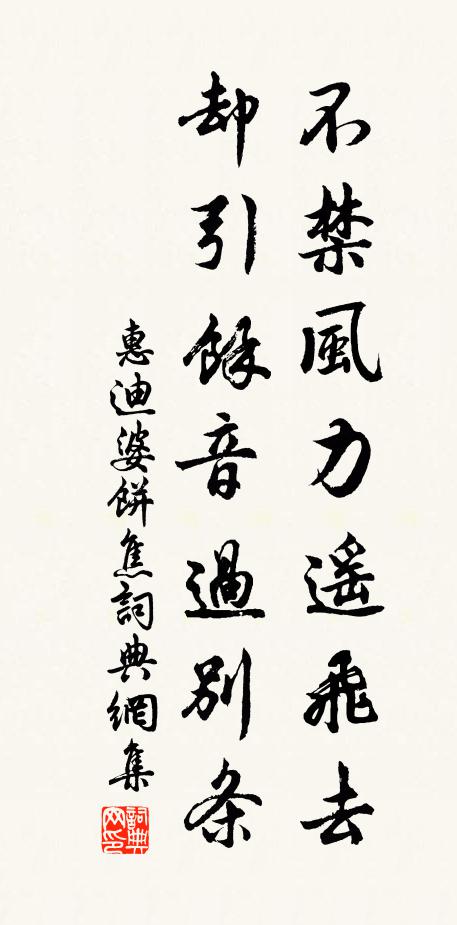 不禁風力遥飛去
却引餘音過別条
惠迪婆餅焦詞典網集
詞典網印